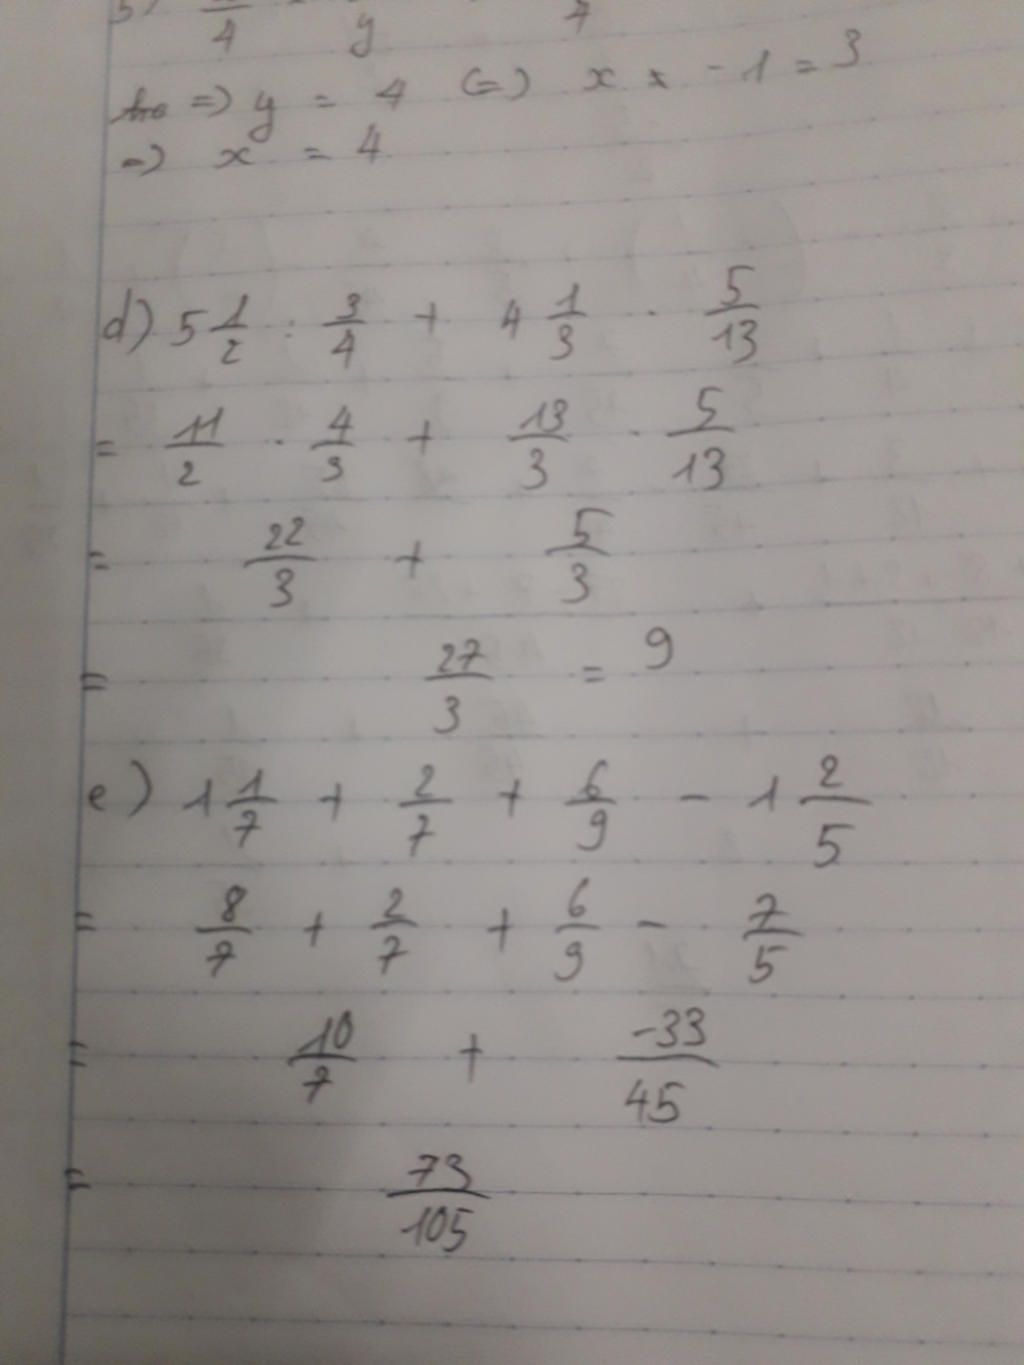 4 y 7
=> y = 4 (=) x - 1 = 3
=> x = 4
d) 5 1/2 : 3/4 + 4 1/3 . 5/13
= 11/2 . 4/3 + 13/3 . 5/13
= 22/3 + 5/3
= 27/3 = 9
e) 1 1/7 + 2/7 + 6/9 - 1 2/5
= 8/7 + 2/7 + 6/9 - 7/5
= 10/7 + -33/45
= 73/105